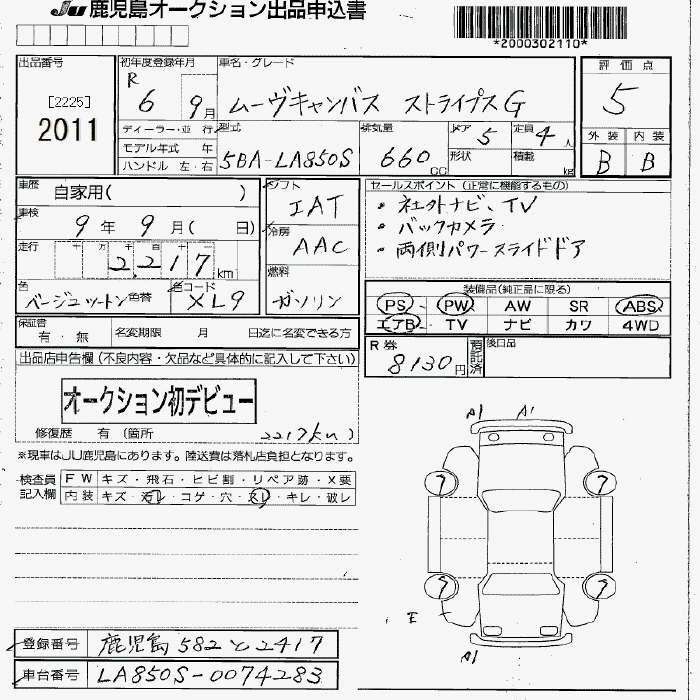 JU 鹿児島オークション出品申込書
*2000302110*
出品番号
[2225]
2011
初年度登録年月
R 6 9月
車名・グレード
ムーヴキャンバス ストライプスG
評価点
5
ディーラー・並行
モデル年式 年
ハンドル 左・右
型式
5BA-LA850S
排気量
660 CC
ドア 5
形状
定員 4人
積載 kg
外装 内装
B B
車歴 自家用( )
車検 9年 9月( 日)
走行 十 万 千 百 十 一
2,217 km
色 ベージュツートン 色替
色コード XL9
シフト
IAT
冷房
AAC
燃料
ガソリン
セールスポイント (正常に機能するもの)
・社外ナビ、TV
・バックカメラ
・両側パワースライドドア
装備品(純正品に限る)
PS PW AW SR ABS
エアB TV ナビ カワ 4WD
保証書
有・無
名変期限 月 日迄に名変できる方
R券 8130円
預託済
後日品
出品店申告欄 (不良内容・欠品など具体的に記入して下さい)
オークション初デビュー
修復歴 有 (箇所 2217km )
※現車はJU鹿児島にあります。陸送費は落札店負担となります。
検査員記入欄
FW キズ・飛石・ヒビ割・リペア跡・X要
内装 キズ・汚レ・コゲ・穴・スレ・キレ・破レ
A1 A1
7 7
7 7
E
A1
登録番号 鹿児島 582 と 2417
車台番号 LA850S-0074283